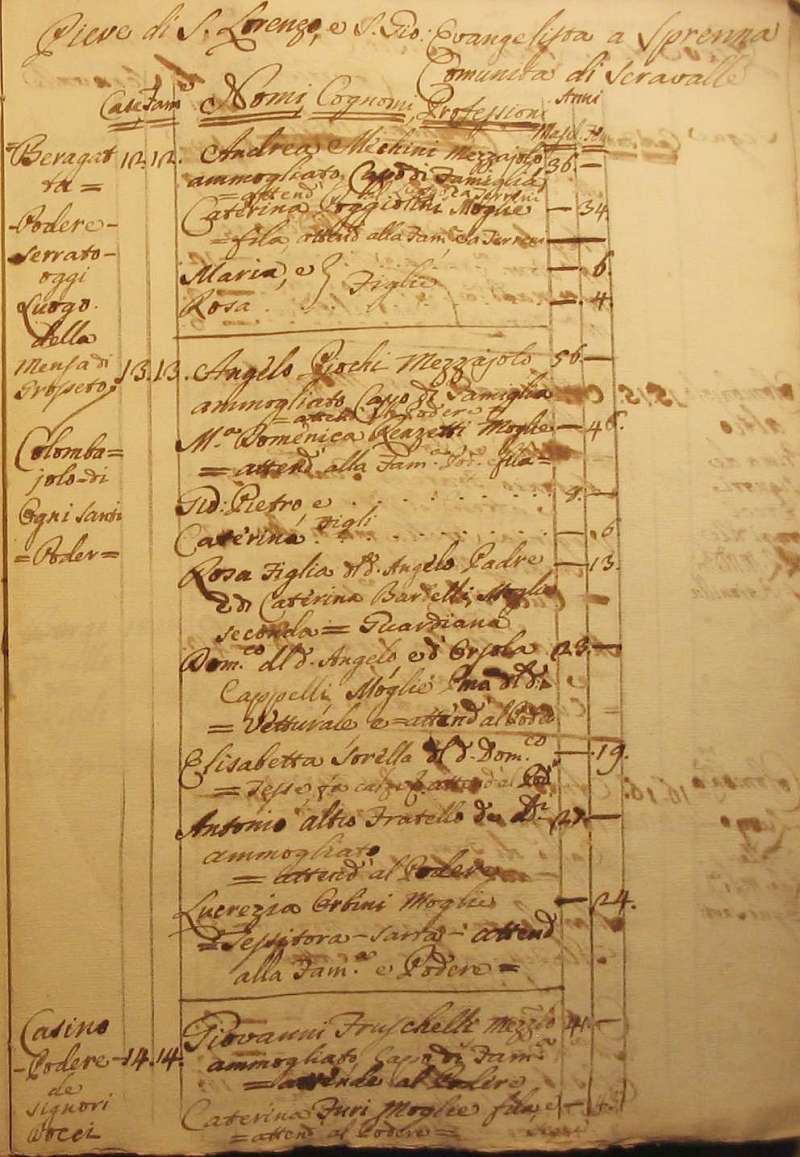 Pieve di S. Lorenzo, e S. Gio: Evangelista a Sprenna
Comunità di Seravalle
Case, Fam.e Nomi, Cognomi, Professioni Anni
Masch. Fem.
Beragatta = 12. 12. Andrea Michini Mezzajolo 36 —
ammogliato Capo di Famiglia
= attend.
Caterina Poggiolini Moglie — 34
= fila, attend alla Fam.
Maria, e } Figlie — 6
Rosa — 4.
- Podere -
Serrato -
oggi
Luogo
della
Mensa di
Grosseto
13. 13. Angelo Piochi Mezzajolo 56 —
ammogliato Capo di Famiglia
= attend al Podere
M.a Domenica Renzetti Moglie — 46.
= attend alla Fam.a Pod.e fila =
Colomba=
jolo di
Ogni Santi
= Poder =
Gio: Pietro e 9. —
Caterina Figli — 6
Rosa Figlia del d. Angelo Padre — 13.
e di Caterina Bardelli, Moglie
seconda = Guardiana
Dom.co del d. Angelo, e d'Orsola 23. —
Cappelli, Moglie
= Vetturale e = attend al Podere
Elisabetta Sorella del d. Dom.co — 19.
= Tesse fa calze attend al Pod.
Antonio altro Fratello 27. —
ammogliato
= attend al Podere
Lucrezia Orbini Moglie — 24.
= Tessitora - Sarta - attend
alla Fam.a e Podere =
Casino
- Podere - 14. 14. Giovanni Fruschelli Mezz.lo 41. —
de
Signori
Bocci
ammogliato, Capo di Fam.a
= attende al Podere
Caterina Furi Moglie fila, e —
= attend al Podere =